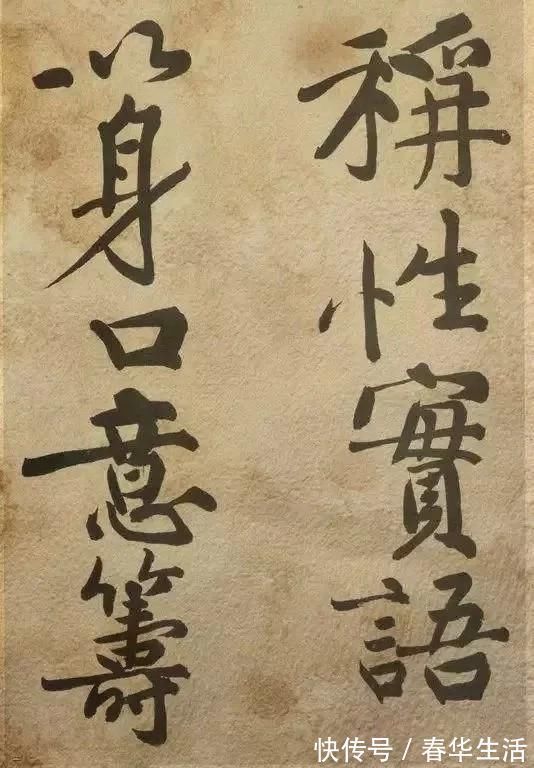 稱性實語
以身口意籌
快传号 / 春华生活